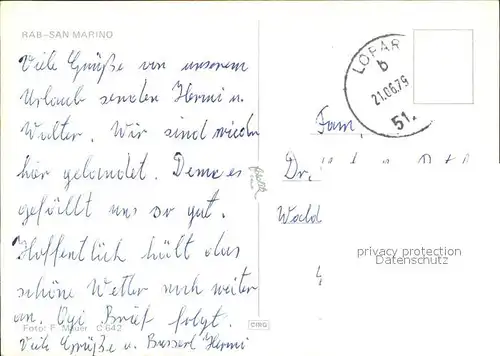 RAB-SAN MARINO
Viele Grüße von unserem
Urlaub senden Hermi u.
Walter. Wir sind wieder
hier gelandet. Denn es
gefällt uns so gut.
Hoffentlich hält das
schöne Wetter noch weiter
an. Brief folgt.
Foto: F. Mauer C 642
Viele Grüße u. Busserl Hermi
LOPAR
b
21.06.79
51.
Fam.
Dr.
Wald
privacy protection
Datenschutz